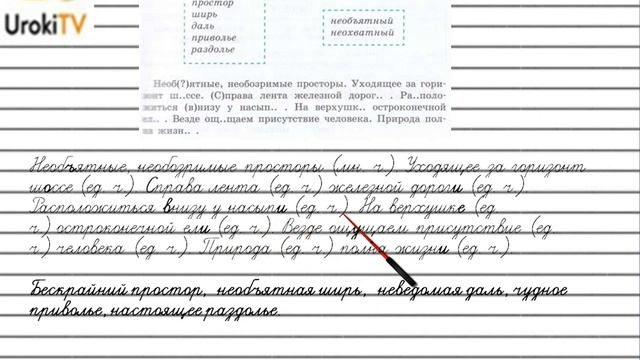 UrokiTV
простор
ширь
даль
приволье
раздолье
необъятный
неохватный
Необ(?)ятные, необозримые просторы. Уходящее за гори-
зонт ш..ссе. (С)права лента железной дорог.. . Ра..поло-
житься (в)низу у насып.. . На верхушк.. остроконечной
ел.. . Везде ощ..щаем присутствие человека. Природа пол-
на жизн.. .
Необъятные, необозримые просторы (мн. ч.). Уходящее за горизонт
шоссе (ед. ч.). Справа лента (ед. ч.) железной дороги (ед. ч.).
Расположиться внизу у насыпи (ед. ч.). На верхушке (ед.
ч.) остроконечной ели (ед. ч.). Везде ощущаем присутствие (ед.
ч.) человека (ед. ч.). Природа (ед. ч.) полна жизни (ед. ч.).
Бескрайний простор, необъятная ширь, неведомая даль, чудное
приволье, настоящее раздолье.